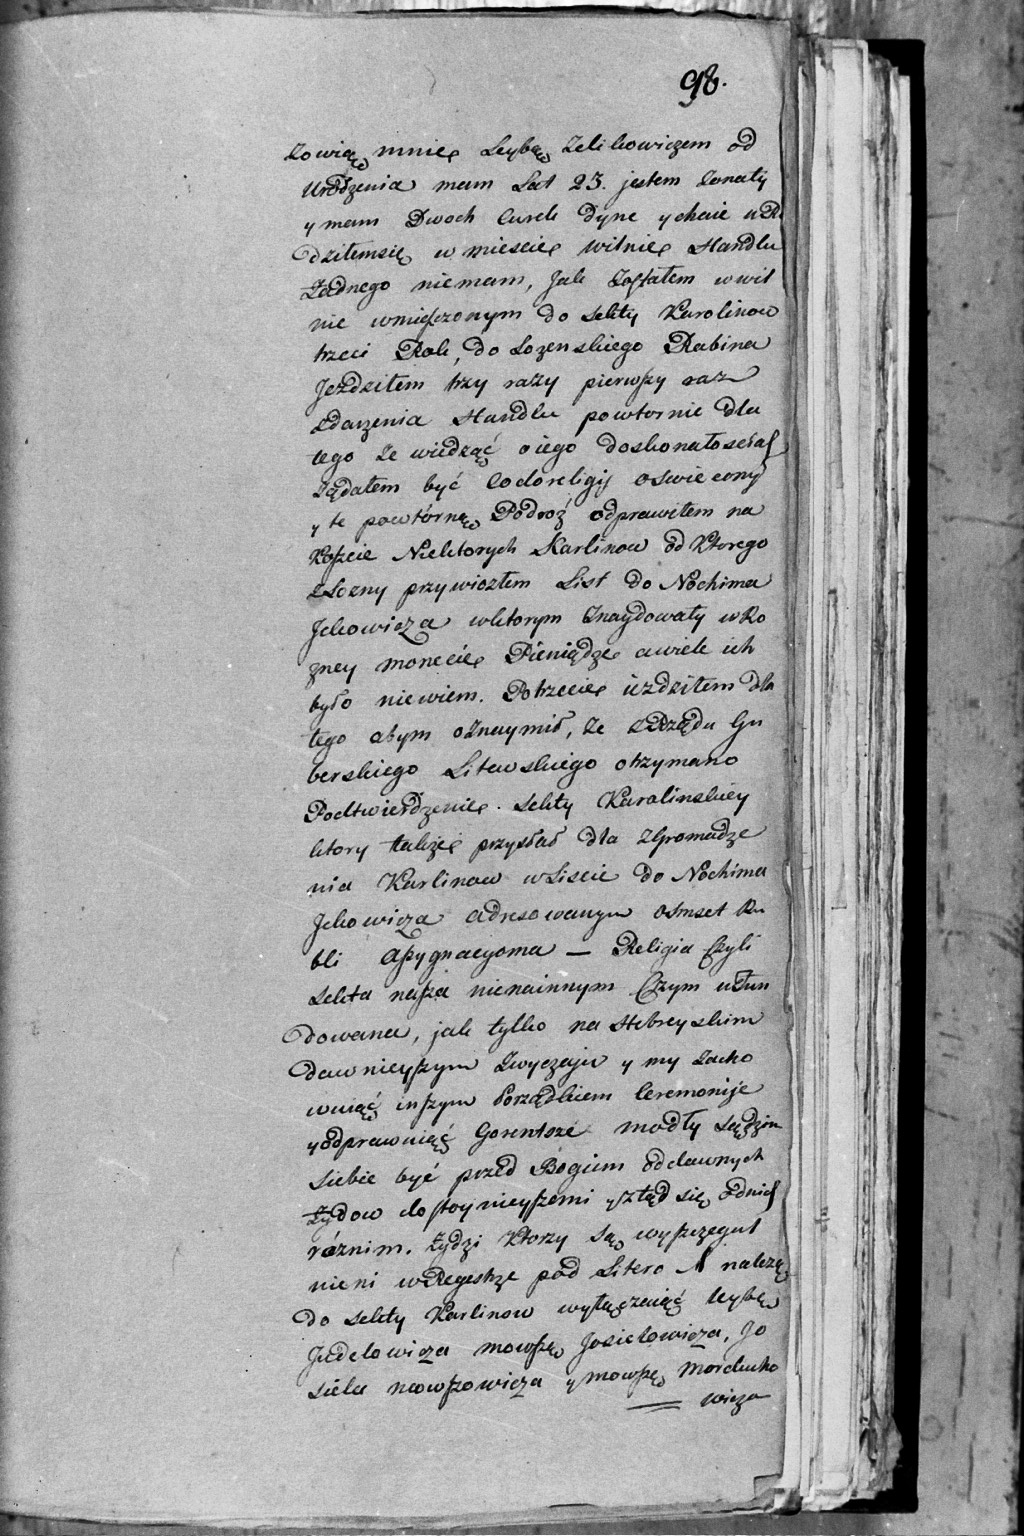 98.
Zowią mnie Leybą Zelikowiczem od
Urodzenia mam Lat 23. jestem Zonaty
y mam Dwoch Curek dyne y chaie u Ro
dziłemsię w miescie wilnie Handlu
Żadnego niemam, Jak Zostałem w wil
nie wmieszczonym do sekty Karolinow
trzeci Rok, do Lozenskiego Rabina
Jezdziłem trzy razy pierwszy raz
zdarzenia Handlu powtornie dla
tego ze wiedząć oiego doskonałosciach
Żądałem być Codoreligij oswiecony
y te powtórną Podroź odprawiłem na
Koszcie Niektorych Karlinow od Ktorego
z Lozny przywiozłem List do Nochima
Jckowicza wktorym Znaydowały w Ro
zney monecie Pieniądze awiele ich
było niewiem. Potrzecie iezdziłem dla
tego abym oznaymił, ze z Rządu Gu
berskiego Litewskiego otrzymano
Podtwierdzenie sekty Karolinskiey
ktory także przysłał dla zGromadze
nia Karlinow w Liscie do Nochima
Jckowicza adresowanym osmset Ru
bli aszygnacyoma — Religia Czyli
sekta nasza nienainnym Czym ufun
dowana, jak tylko na Hebreyskim
dawnieyszym Zwyczaju y my zacho
wuiąć inszym Porządkiem Ceremonije
y odprawuiąć Gorentsze modły sądzim
siebie być przed Bogiem oddawnych
Żydow dostoynieyszemi y ztąd się odnich
róznim. Żydzi Ktorzy są wyszczegul
nieni w Regestrze pod Litero A nalezą
do sekty Karlinow wyłączaiąć Leybę
Judelowicza mowszę Josielowicza, Jo
siela mowszowicza y mowszę Morducho
wicza